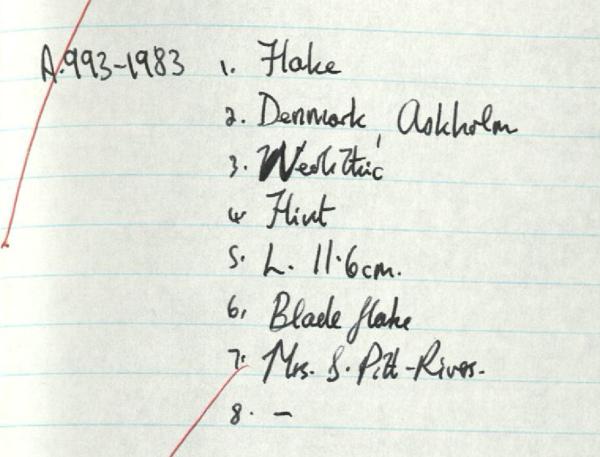 A.993-1983 1. Flake
2. Denmark, Askholm
3. Neolithic
4. Flint
5. L. 11.6cm.
6. Blade flake
7. Mrs. S. Pitt-Rivers.
8. -